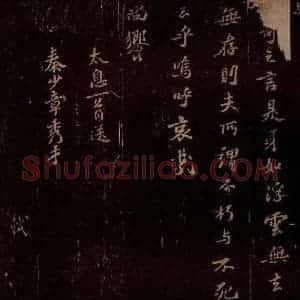 之言是身如浮雲無去
無存則夫所謂不朽與不死
云乎嗚呼哀哉
尚饗
太息一首送
秦少章秀才
Shufaziliao.com